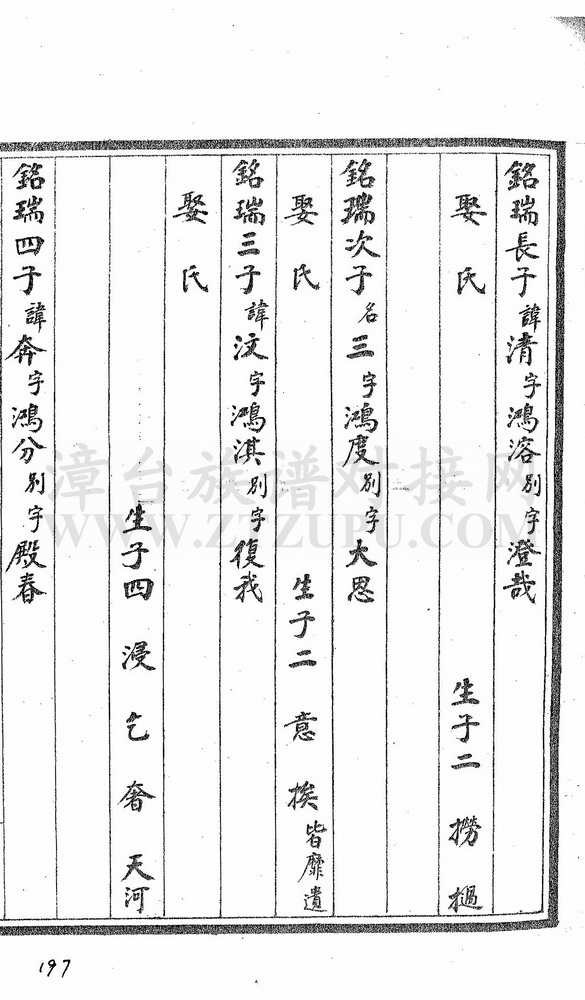 銘瑞長子諱清字鴻溶別字澄哉
娶氏 生子二 撈 檛
銘瑞次子名三字鴻度別字大恩
娶氏 生子二 意 挨 皆靡遺
銘瑞三子諱汶字鴻淇別字復我
娶氏
生子四 浸 乞 奢 天河
銘瑞四子諱奔字鴻分別字殿春
197
漳台族谱对接网
WWW.ZTZUPU.COM